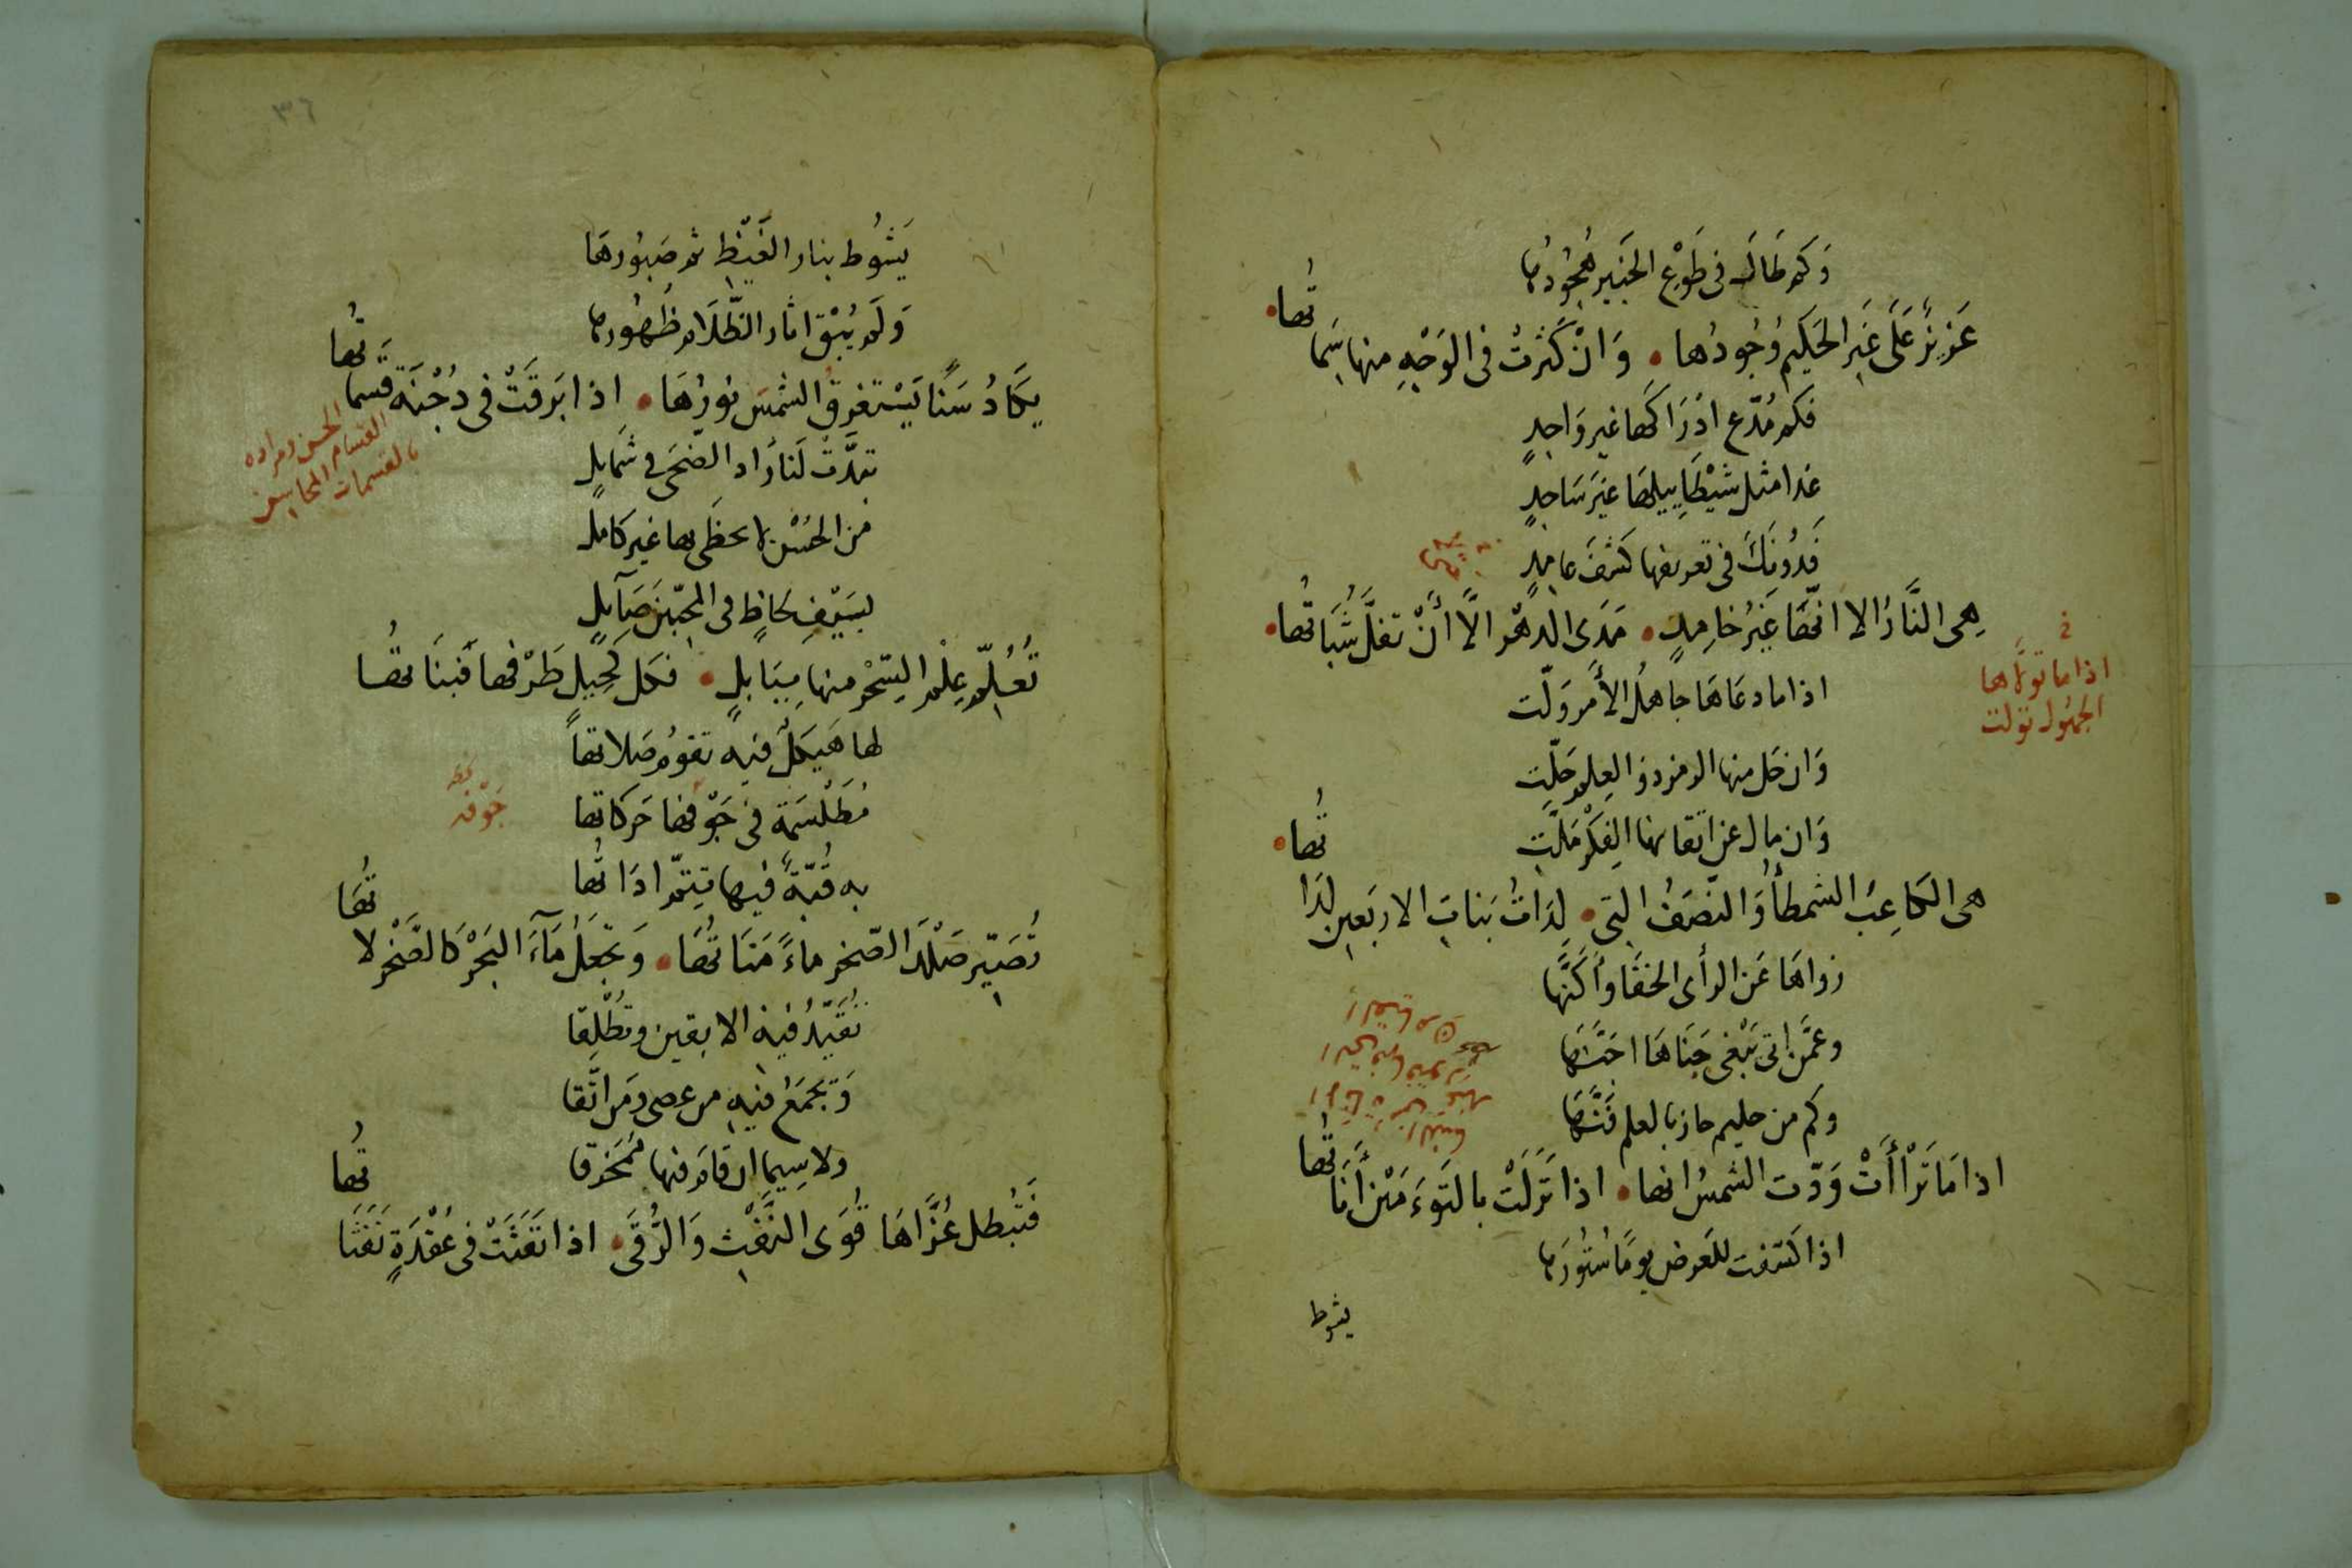 وَكم طَالَ فى طَوْعِ الخَبير هُجُودُها
عَزيزٌ عَلَى غَيرِ الحَكيم وُجُودُها • وَانْ كَثُرتْ فى الوَجْهِ منها سِماتُها •
فكم مُدّعٍ ادْرَاكَها غير وَاجدٍ
غدا مثل شيْطَا بيلها غيَر سَاجدٍ
فَدُونَكَ فى تعريفها كَشْفَ عامدٍ
هِى النَّارُ الا انّها غَيْرُ خامِدٍ • مَدَى الدهْر الَّا أَنْ تفلَّ شُبَاتُها •
اذا ما دعَاهَا جاهلُ الأَمر وَلّت
وَان حَل منها الرمز ذو العِلم حَلّتِ
وَان مال عن اتقانها الفِكْر مَلّتِ
هى الكاعِبُ الشمطأُ وَالنّصَفُ التى • لِدَاتُ بَناتِ الاربَعين لِدَاتُها •
زواهَا عَن الرأى الخفَا وأَكَنَّها
وعمَّن اتى يَبْغى جَنَاهَا اجَنَّها
وكم من حليم حاز بالعلم فَنَّها
اذا مَا تَرْاأَتْ وَدّت الشمسُ انها • اذا تَرَلَتْ بالتَوءَمَيْن أَنَاتُها
اذا كَشَفت للعَرض يومًا سُتُورَها
يشوط
اذا ما تولَّاها
الجهُول تولت
يَشُوط بنار الغَيْظِ ثم صَبُورهَا
وَلَم يُبْقِ اثار الظّلَام ظُهُورها
يكَادُ سَنًا يَسْتغرقُ الشمَس نورُهَا • اذا بَرقَتْ فى دُجْنَة قسَماتُها
تبدَّتْ لَنا رَاد الضّحَى فى شمَايلٍ
من الحُسْن لا يحظَى بها غير كامل
بسَيْفِ لحَاظٍ فى المحبّين صَآيلٍ
تُعُلِّم عِلْم السِّحْر منها بِبَابلٍ • فكل كَحِيل طَرْفها فَبنَاتها
لها هَيكلٌ فيه تقوُم صَلاتها
مُطَلْسَمَة فى جَوْفها حَركاتها
به قُبّةٌ فيها تتِمّ اداتُها
تُصَيّر صَلْدَ الصّخر ماءً مَنَاتُها • وَتجْعَلُ مَآءَ البَحْر كالصَّخْر لاتُها
تُقَيّدُ فيهِ الابقين وتُطْلِقا
وَتجمَعُ فيهِ من عصى ومَن اتَّقا
ولا سِيما ان قام فيها مُمَخْرِقا
فَتُبطل عُزَّاهَا قُوَى النَّفْثِ وَالرُّقَى • اذا نَفَثَتْ فى عُقْدَةٍ نَفَثَاتُها
القسام الحسن ومراده
بالقسمات المحاسن
جَوْفه
٣٦